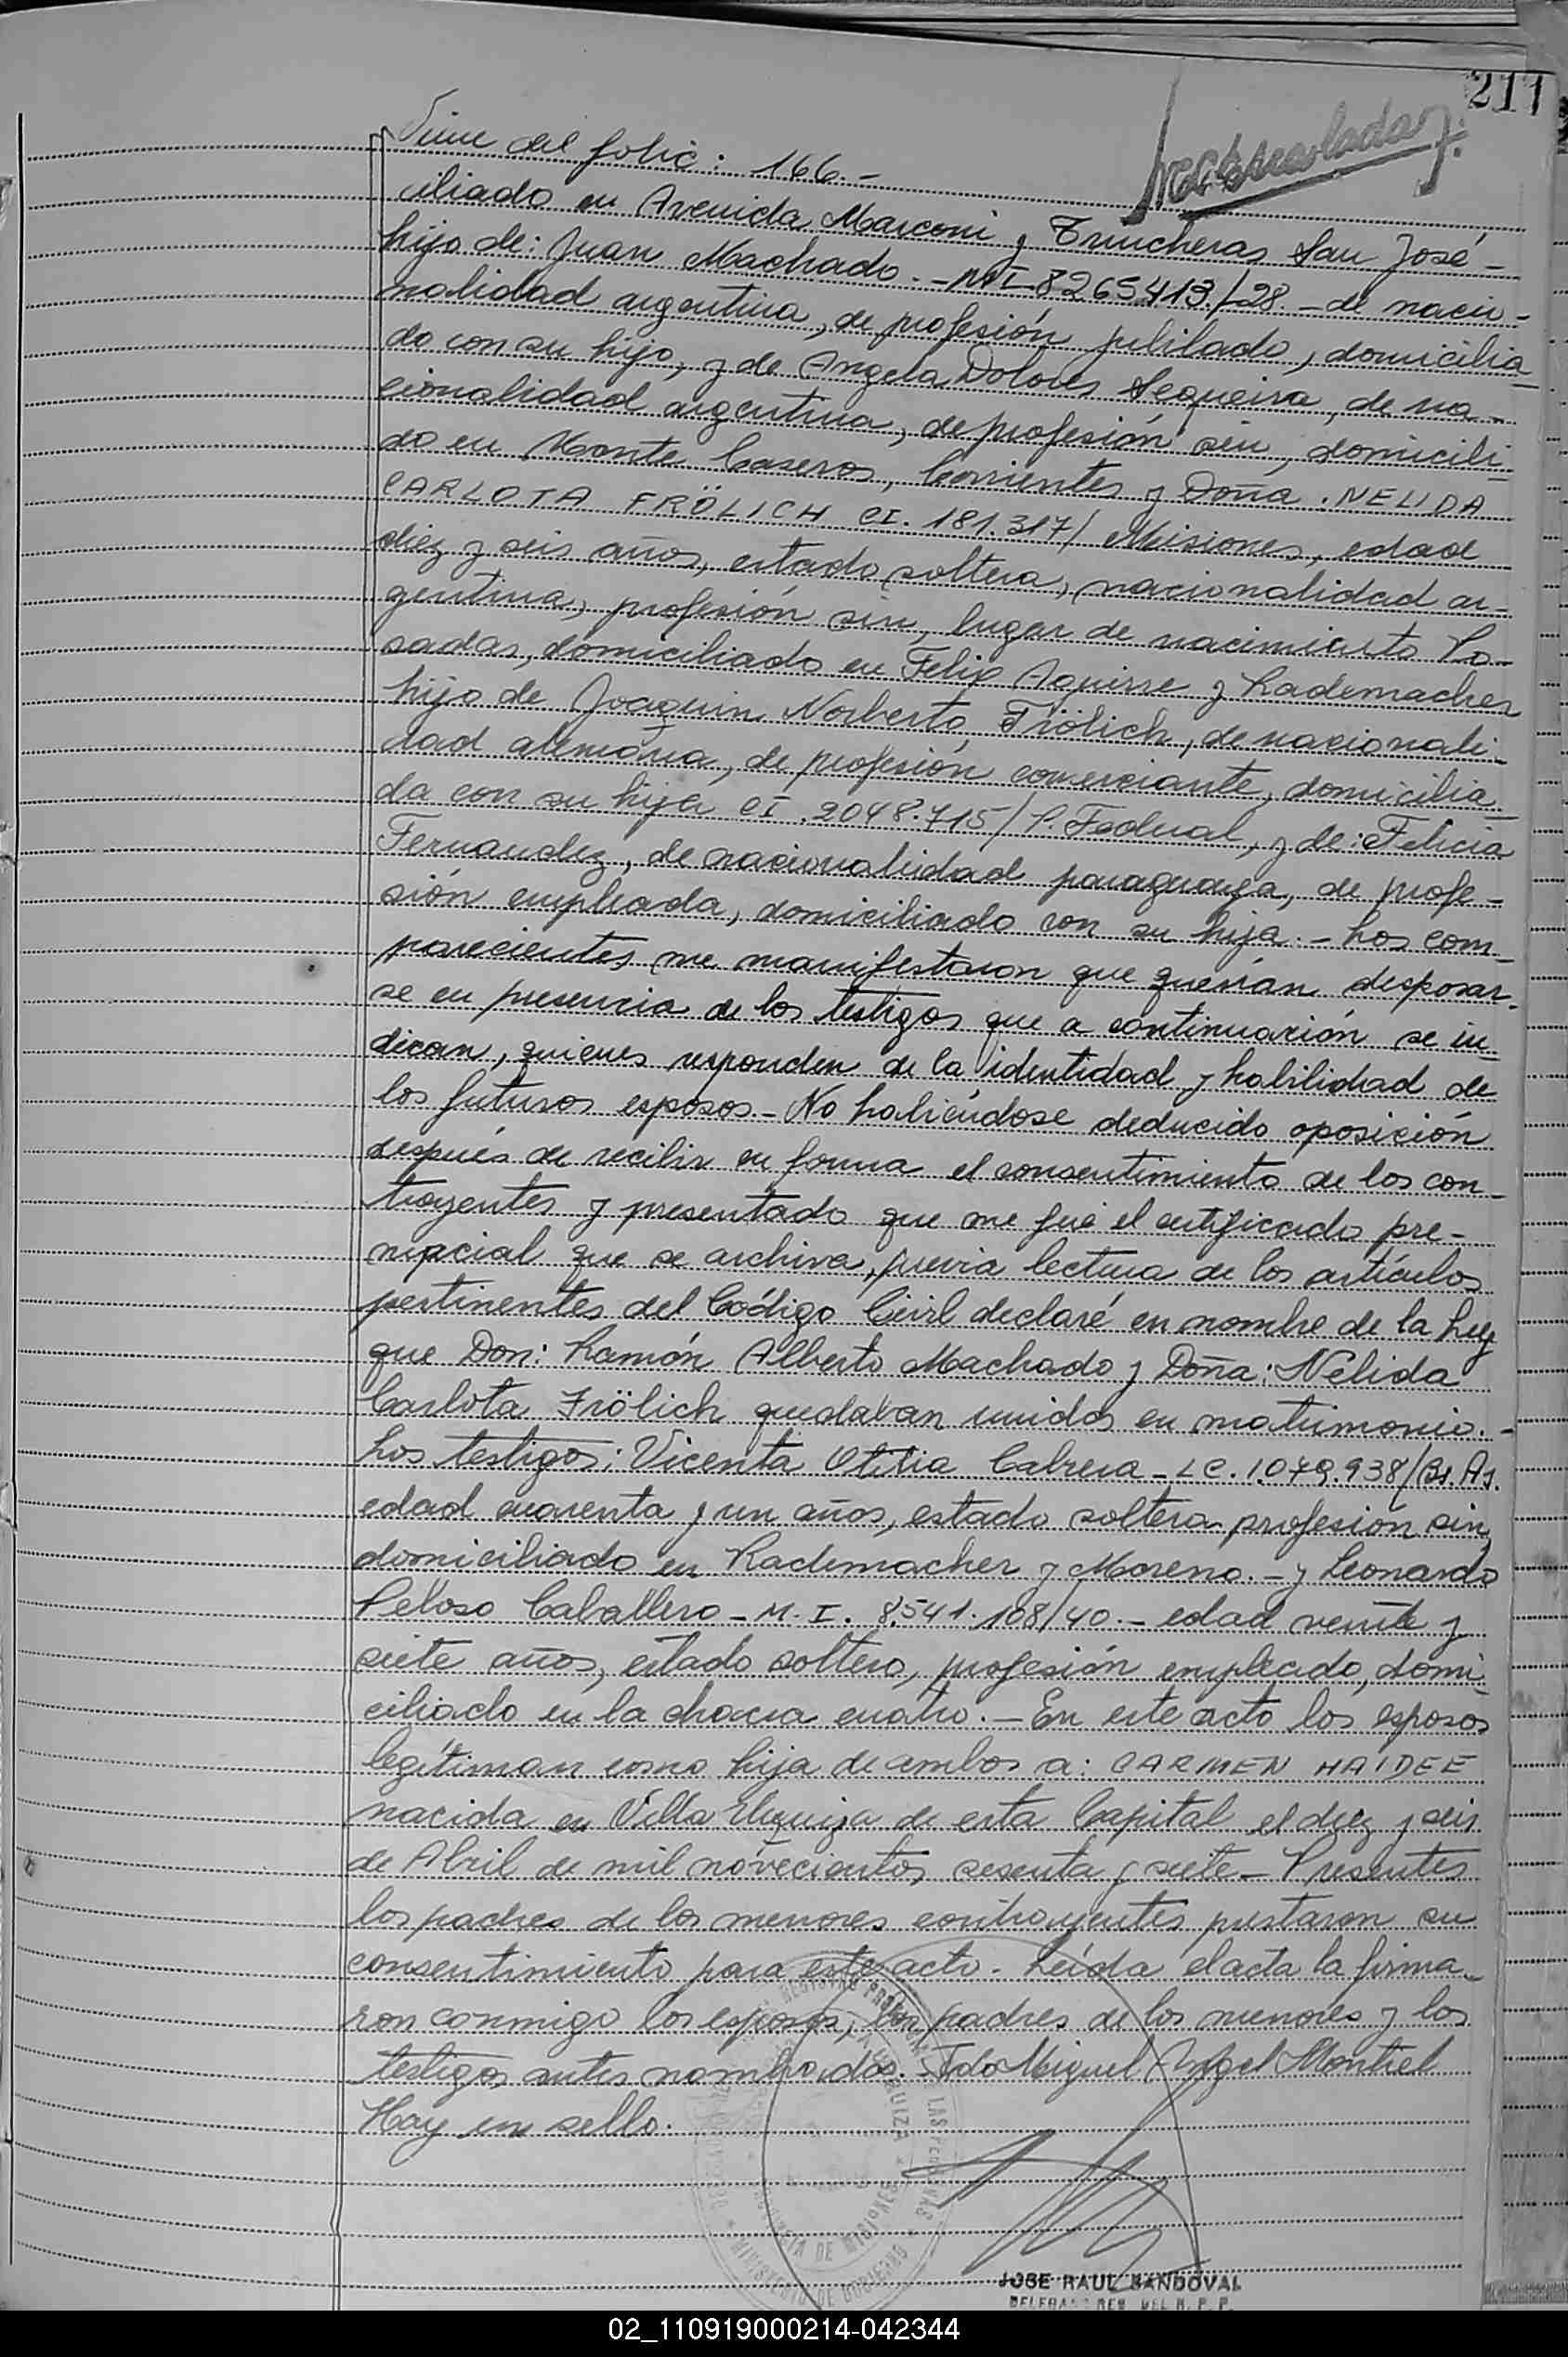 211
Viene del folio: 166.-
ciliado en Avenida Marconi y Trincheras San José -
hijo de: Juan Machado. - MI-8265413/28 - de nacio-
nalidad argentina, de profesión jubilado, domicilia-
do con su hijo, y de Angela Dolores Sequeira, de na-
cionalidad argentina, de profesión sin, domicili-
do en Monte Caseros, Corrientes y Doña. NELIDA
CARLOTA FRÖLICH CI. 181.317/ Misiones, edad
diez y seis años, estado soltera, nacionalidad ar-
gentina, profesión sin, lugar de nacimiento Po-
sadas, domiciliado en Felix Aguirre y Rademacher
hijo de Joaquin Norberto Frölich, de nacionali-
dad alemana, de profesión comerciante, domicilia-
da con su hija CI. 2048.715/P. Federal, y de: Felicia
Fernandez, de nacionalidad paraguaya, de profe-
sión empleada, domiciliado con su hija. - Los com-
parecientes me manifestaron que querían desposar-
se en presencia de los testigos que a continuación se in-
dican, quienes responden de la identidad y habilidad de
los futuros esposos. - No habiéndose deducido oposición
después de recibir en forma el consentimiento de los con-
trayentes y presentado que me fué el certificado pre-
nupcial que se archiva, previa lectura de los artículos
pertinentes del Código Civil declaré en nombre de la Ley
que Don: Ramón Alberto Machado y Doña: Nélida
Carlota Frölich quedaban unidos en matrimonio. -
Los testigos: Vicenta Otilia Cabrera - LC. 1.079.938/Bs. As.
edad cuarenta y un años, estado soltera profesión sin,
domiciliado en Rademacher y Moreno. - y Leonardo
Peloso Caballero - M. I. 8.541.108/40. - edad veinte y
siete años, estado soltero, profesión empleado, domi-
ciliado en la chacra cuatro. - En este acto los esposos
legitiman como hija de ambos a: CARMEN HAIDEE
nacida en Villa Urquiza de esta Capital el diez y seis
de Abril de mil novecientos sesenta y siete - Presentes
los padres de los menores contrayentes prestaron su
consentimiento para este acto. Leída el acta la firma-
ron conmigo los esposos, los padres de los menores y los
testigos antes nombrados. - Fdo Miguel Angel Montiel
Hay un sello.
JOSE RAUL SANDOVAL
02_110919000214-042344